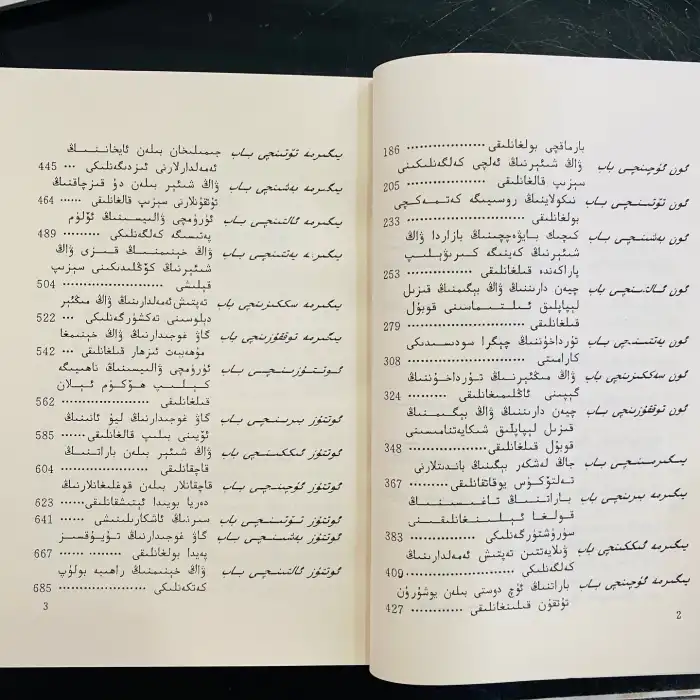 بارماقچى بولغانلىقى ................ 186
ئون ئۈچىنچى باب ۋاڭ شىئېرنىڭ ئەلچى كەلگەنلىكىنى
سېزىپ قالغانلىقى .................. 205
ئون تۆتىنچى باب نىكولاينىڭ روسىيىگە كەتمەكچى
بولغانلىقى .......................... 233
ئون بەشىنچى باب كىچىك بايۋەچچىنىڭ بازاردا ۋاڭ
شىئېرنىڭ كەينىگە كىرىۋېلىپ
پاراكەندە قىلغانلىقى ............... 253
ئون ئالتىنچى باب چيەن دارىننىڭ ۋاڭ بېگىمنىڭ قىزىل
لېپاپلىق ئىلتىماسىنى قوبۇل
قىلغانلىقى .......................... 279
ئون يەتتىنچى باب تۇرداخۇننىڭ چېگرا سودىسىدىكى
كارامىتى ........................... 308
ئون سەككىزىنچى باب ۋاڭ مىڭئېرنىڭ تۇرداخۇننىڭ
گېپىنى ئاڭلىمىغانلىقى .............. 324
ئون توققۇزىنچى باب چيەن دارىننىڭ ۋاڭ بېگىمنىڭ
قىزىل لېپاپلىق شىكايەتنامىسىنى
قوبۇل قىلغانلىقى ................... 348
يىگىرمىنچى باب جاڭ لەشكەر بېگىنىڭ باندىتلارنى
تەلتۆكۈس يوقاتقانلىقى ............. 367
يىگىرمە بىرىنچى باب باراتنىڭ تاغىسىنىڭ
قولغا ئېلىنغانلىقىنى
سۈرۈشتۈرگەنلىكى ................. 383
يىگىرمە ئىككىنچى باب ۋىلايەتتىن تەپتىش ئەمەلدارىنىڭ
كەلگەنلىكى ......................... 409
يىگىرمە ئۈچىنچى باب باراتنىڭ ئۈچ دوستى بىلەن يوشۇرۇن
تۇتقۇن قىلىنغانلىقى ............... 427
2
يىگىرمە تۆتىنچى باب جىمىلىخان بىلەن ئايخاننىڭ
ئەمەلدارلارنى ئىزدىگەنلىكى ... 445
يىگىرمە بەشىنچى باب ۋاڭ شىئېر بىلەن دۇ قىزچاقنىڭ
تۇتقۇنلارنى سېزىپ قالغانلىقى ...... 464
يىگىرمە ئالتىنچى باب ئۈرۈمچى ۋالىيسىنىڭ ئۆلۈم
پەتىسىگە كەلگەنلىكى ............... 489
يىگىرمە يەتتىنچى باب ۋاڭ خېنىمنىڭ قىزى ۋاڭ
شىئېرنىڭ كۆڭلىدىكىنى سېزىپ
قېلىشى ............................ 504
يىگىرمە سەككىزىنچى باب تەپتىش ئەمەلدارىنىڭ ۋاڭ مىڭئېر
دېلوسىنى تەكشۈرگەنلىكى ......... 522
يىگىرمە توققۇزىنچى باب گاۋ غوجىدارنىڭ ۋاڭ خېنىمغا
مۇھەببەت ئىزھار قىلغانلىقى ...... 542
ئوتتۇزىنچى باب ئۈرۈمچى ۋالىيسىنىڭ ناھىيىگە
كېلىپ ھۆكۈم ئېلان
قىلغانلىقى ......................... 562
ئوتتۇز بىرىنچى باب گاۋ غوجىدارنىڭ ليۇ ئانىنىڭ
ئۆيىنى بىلىپ قالغانلىقى ...... 585
ئوتتۇز ئىككىنچى باب ۋاڭ شىئېر بىلەن باراتنىڭ
قاچقانلىقى ......................... 604
ئوتتۇز ئۈچىنچى باب قاچقانلار بىلەن قوغلىغانلارنىڭ
دەريا بويىدا ئېتىشقانلىقى ...... 623
ئوتتۇز تۆتىنچى باب سىرنىڭ ئاشكارىلىنىشى ...... 641
ئوتتۇز بەشىنچى باب گاۋ غوجىدارنىڭ تۇيۇقسىز
پەيدا بولغانلىقى .................. 667
ئوتتۇز ئالتىنچى باب ۋاڭ خېنىمنىڭ راھىبە بولۇپ
كەتكەنلىكى ....................... 685
3